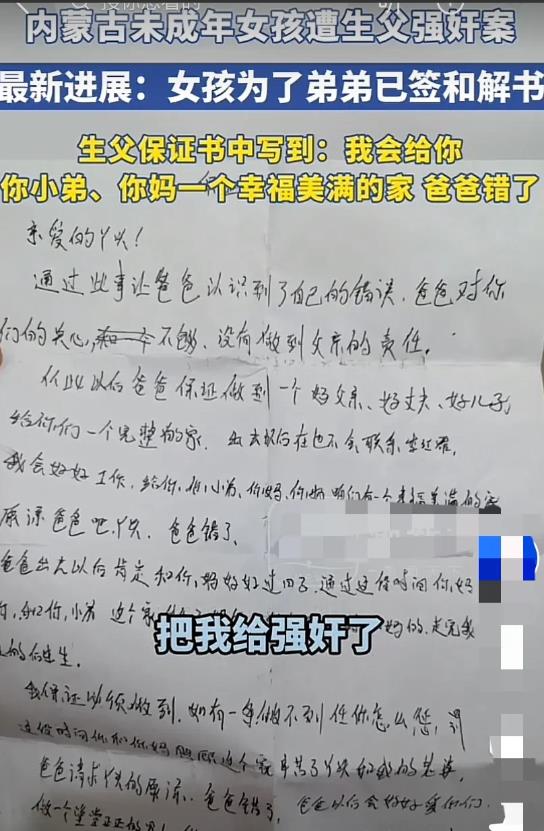 内蒙古未成年女孩遭生父强奸案
最新进展：女孩为了弟弟已签和解书
生父保证书中写到：我会给你
你小弟、你妈一个幸福美满的家 爸爸错了
亲爱的丫头！
通过此事让爸爸认识到了自己的错误，爸爸对你
们的关心，不够、没有做到父亲的责任。
从此以后爸爸保证做到一个好父亲、好丈夫、好儿子，
给你们一个完整的家。出去以后在也不会联系
我会好好工作，给你，你小弟、你妈、你 咱们有一个幸福美满的家
原谅爸爸吧丫头，爸爸错了，
爸爸出去以后肯定和你妈好好过日子，通过这段时间你，妈
和你，小弟 这个家
把我给强奸了
我保证必须做到，如有一条做不到任你怎么惩罚
这段时间你和你妈照顾这个家辛苦了丫头
爸爸请求丫头的原谅，爸爸错了，爸爸以后会好好爱你们，
做一个堂堂正正的男人